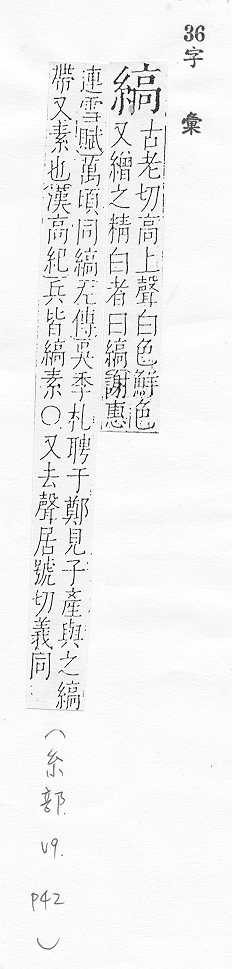 36
字彙
縞
古老切高上聲白色鮮色
又繒之精白者曰縞謝惠
連雪賦萬頃同縞左傳吳季札聘于鄭見子產與之縞
帶又素也漢高紀兵皆縞素○又去聲居號切義同
(糸部 v9. p42)